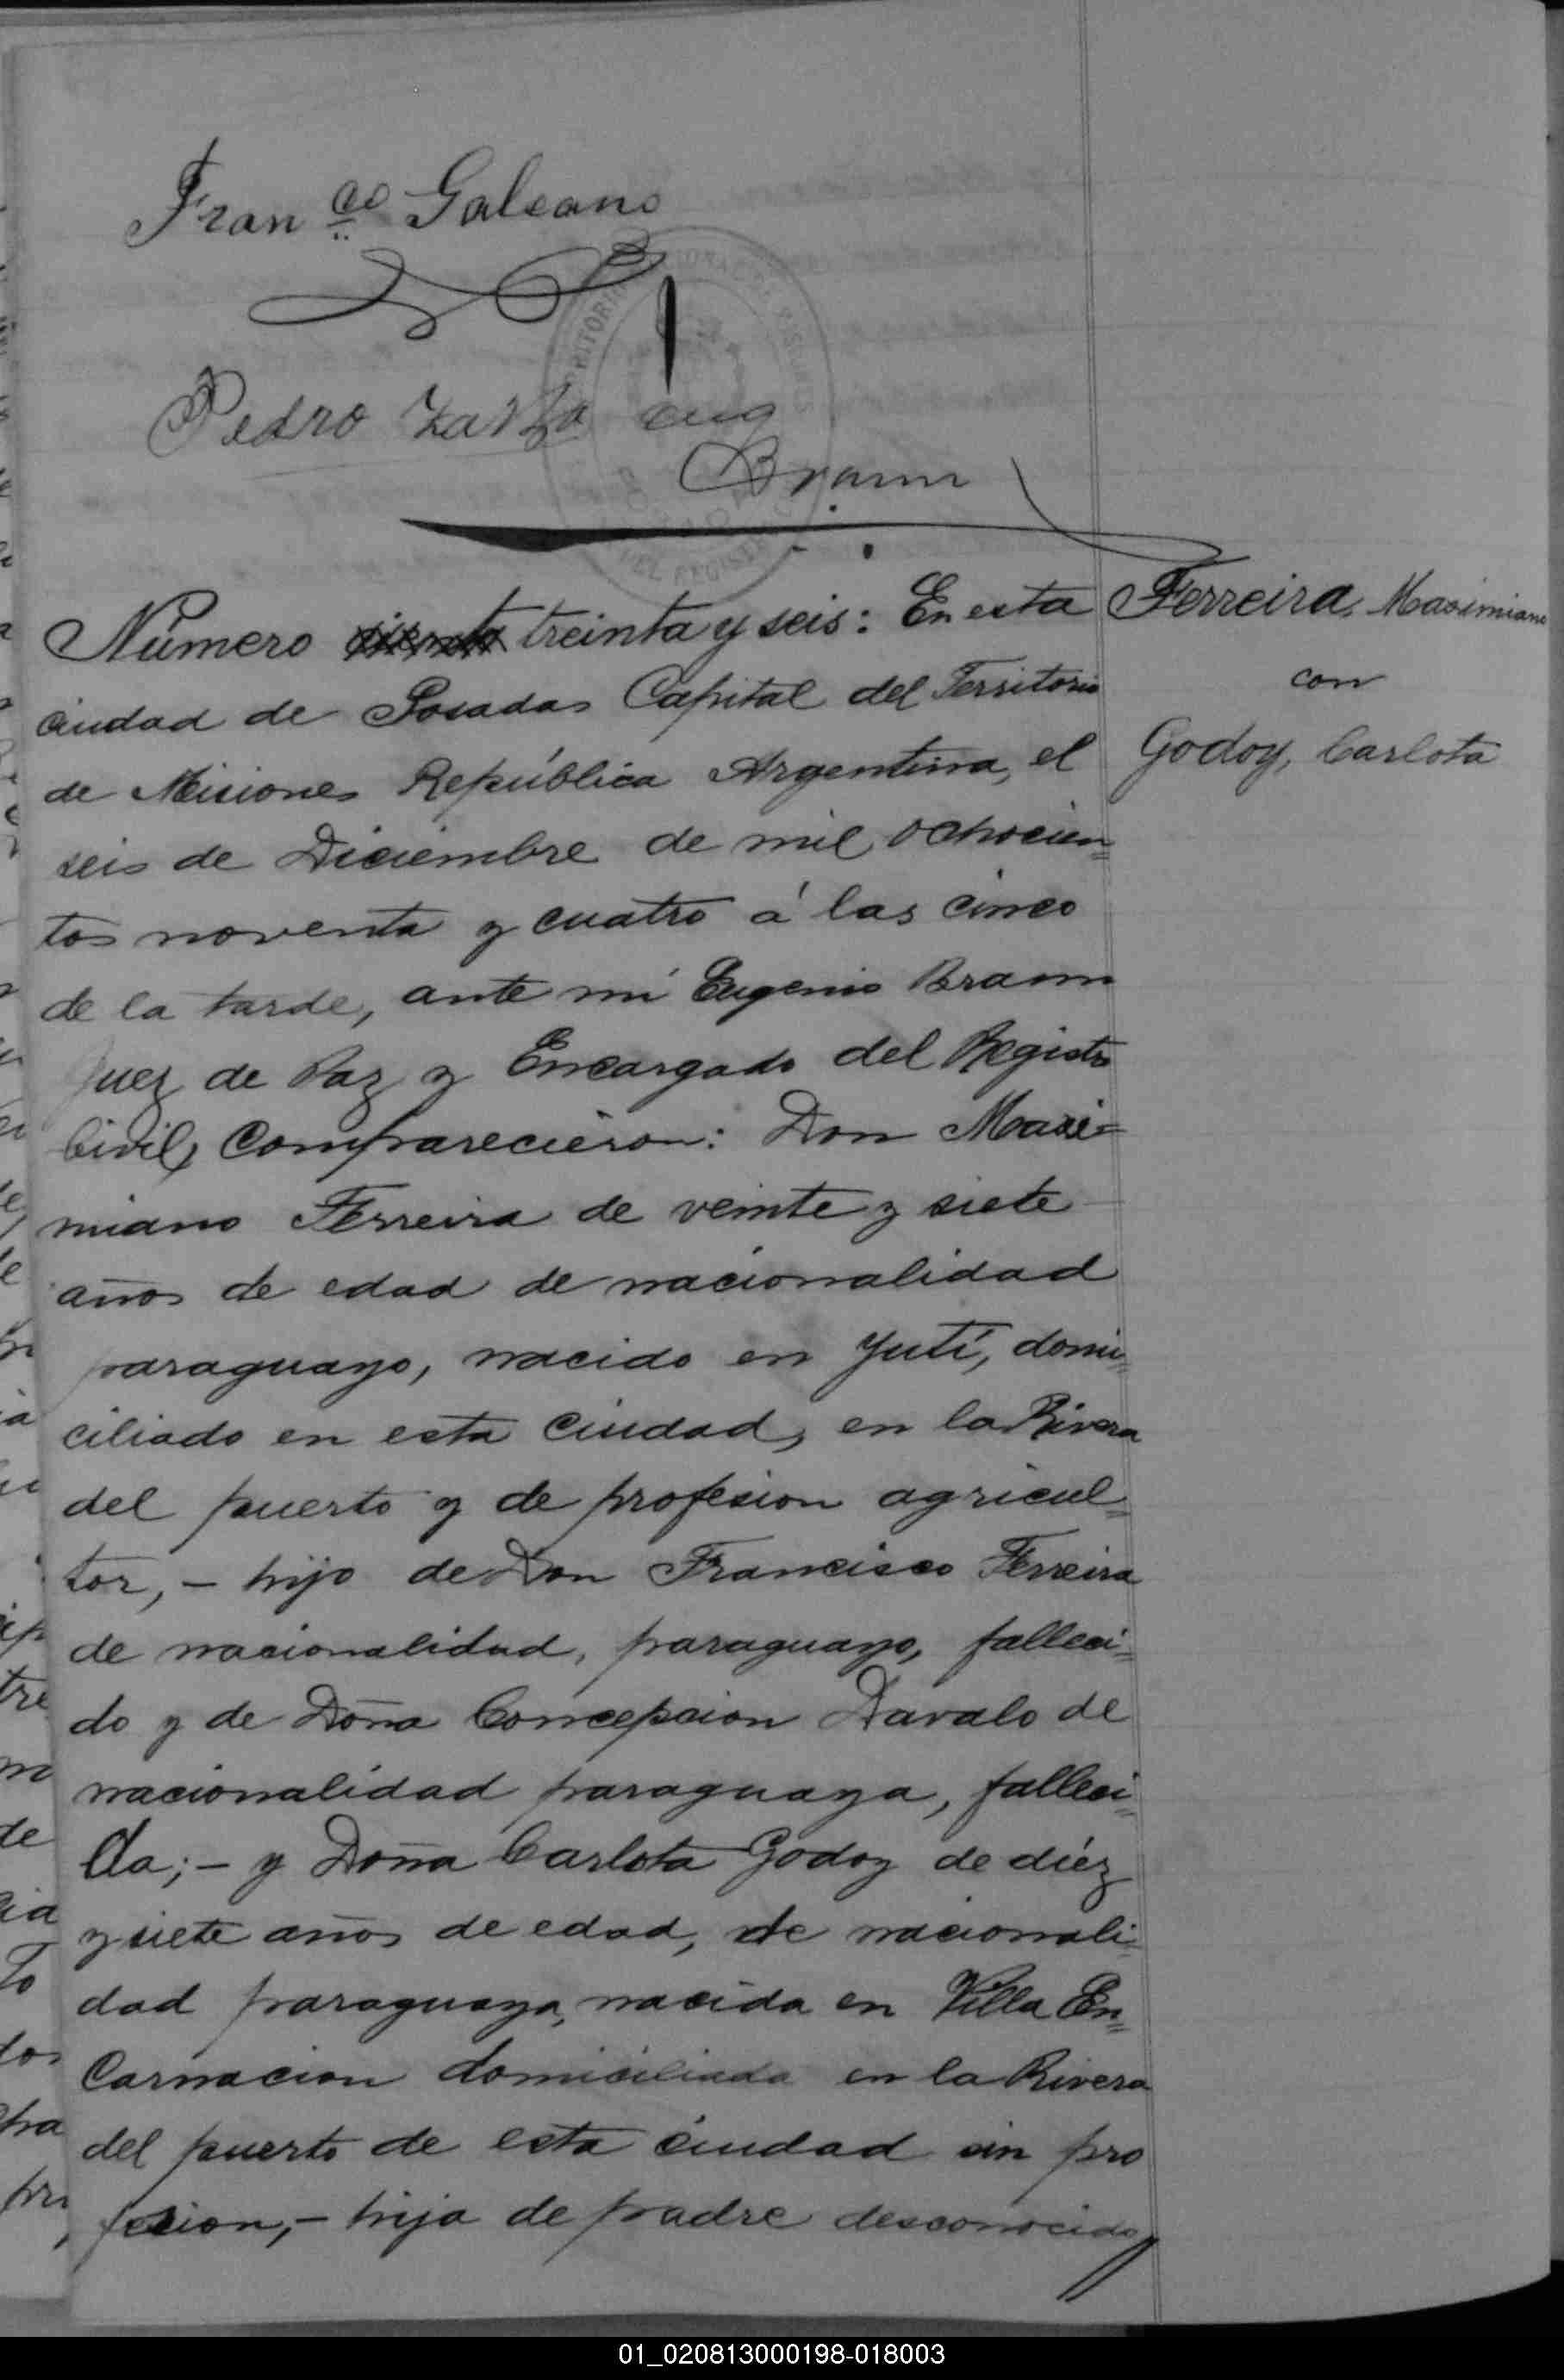 Fran co Galeano
Pedro Zarza Eug
Braum
Número treinta y seis: En esta
ciudad de Posadas Capital del Territorio
de Misiones República Argentina, el
seis de Diciembre de mil ochocien=
tos noventa y cuatro á las cinco
de la tarde, ante mi Eugenio Braum
Juez de Paz y Encargado del Registro
Civil, Comparecieron: Don Maxi=
miano Ferreira de veinte y siete
años de edad de nacionalidad
paraguayo, nacido en Yuti, domi=
ciliado en esta Ciudad, en la Rivera
del puerto y de profesion agricul=
tor, - hijo de Don Francisco Ferreira
de nacionalidad, paraguayo, falleci=
do y de Doña Concepcion Davalo de
nacionalidad paraguaya, falleci=
da; - y Doña Carlota Godoy de diéz
y siete años de edad, de nacionali=
dad paraguaya, nacida en Villa En=
Carnacion domiciliada en la Rivera
del puerto de esta ciudad sin pro
fesion, - hija de padre desconocido
Ferreira, Maximiano
con
Godoy, Carlota
01_020813000198-018003